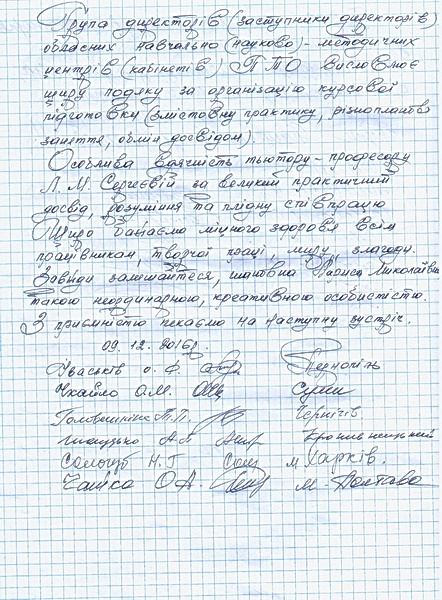 Група директорів (заступники директорів)
обласних навчально (науково)-методичних
центрів (кабінетів) ПТО висловлює
щиру подяку за організацію курсової
підготовки (змістовну практику, різнопланові
заняття, обмін досвідом).
Особлива вдячність тьютору-професору
Л.М. Сергеєвій за великий практичний
досвід, розуміння та плідну співпрацю
Щиро бажаємо міцного здоров'я всім
працівникам, творчої праці, миру, злагоди.
Завжди залишайтеся, шановна Лариса Миколаївна
такою неординарною, креативною особистістю.
З приємністю чекаємо на наступну зустріч.
09.12.2016р.
Іваськів О.Ф. Тернопіль
Чхайло О.М. Суми
П.П. Чернігів
А.А. Кропивницький
Сологуб Н.Г. м Харків.
Чайка О.А. м. Полтава